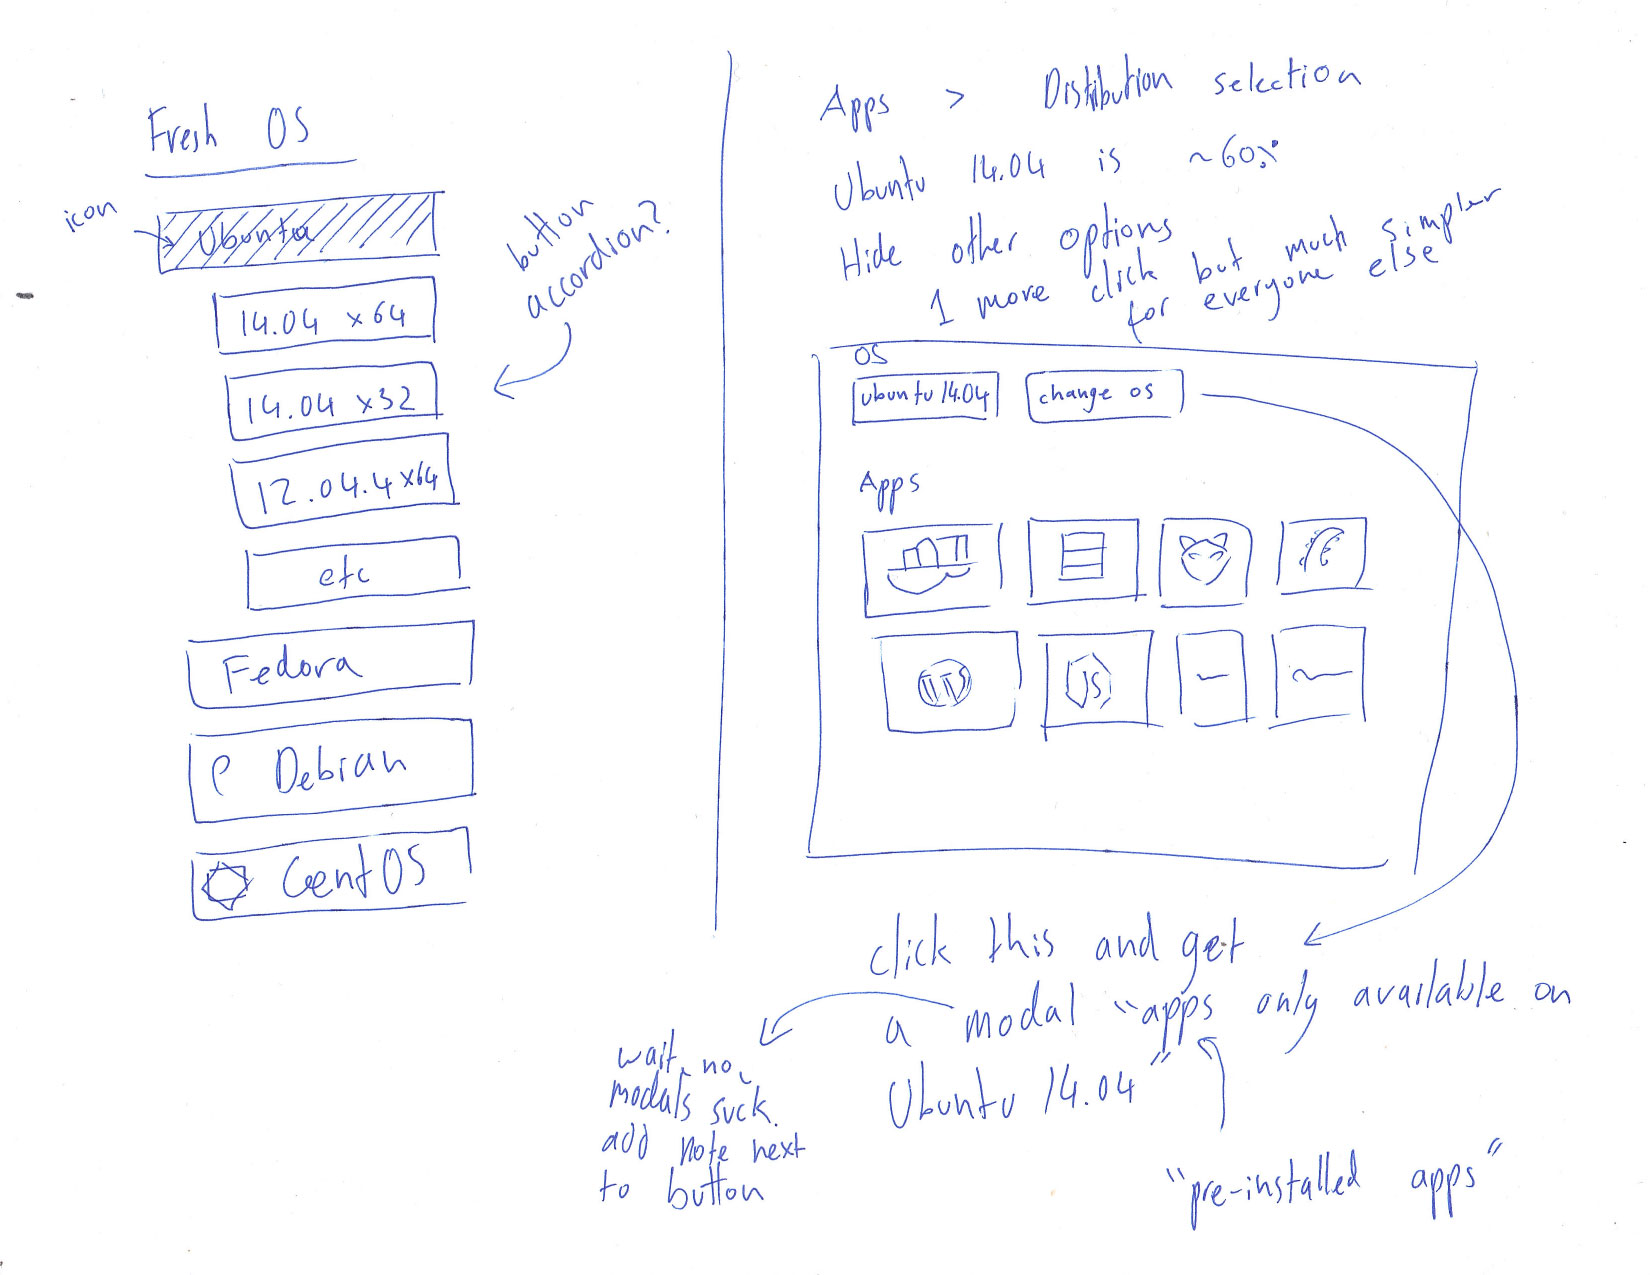 Fresh OS
icon
Ubuntu
button
accordion?
14.04 x64
14.04 x32
12.04.4 x64
etc
Fedora
Debian
CentOS
Apps > Distibution selection
Ubuntu 14.04 is ~60%
Hide other options
1 more click but much simpler
for everyone else
OS
ubuntu 14.04
change os
Apps
JS
click this and get
a modal "apps only available on
Ubuntu 14.04"
wait, no,
modals suck.
add note next
to button
"pre-installed apps"